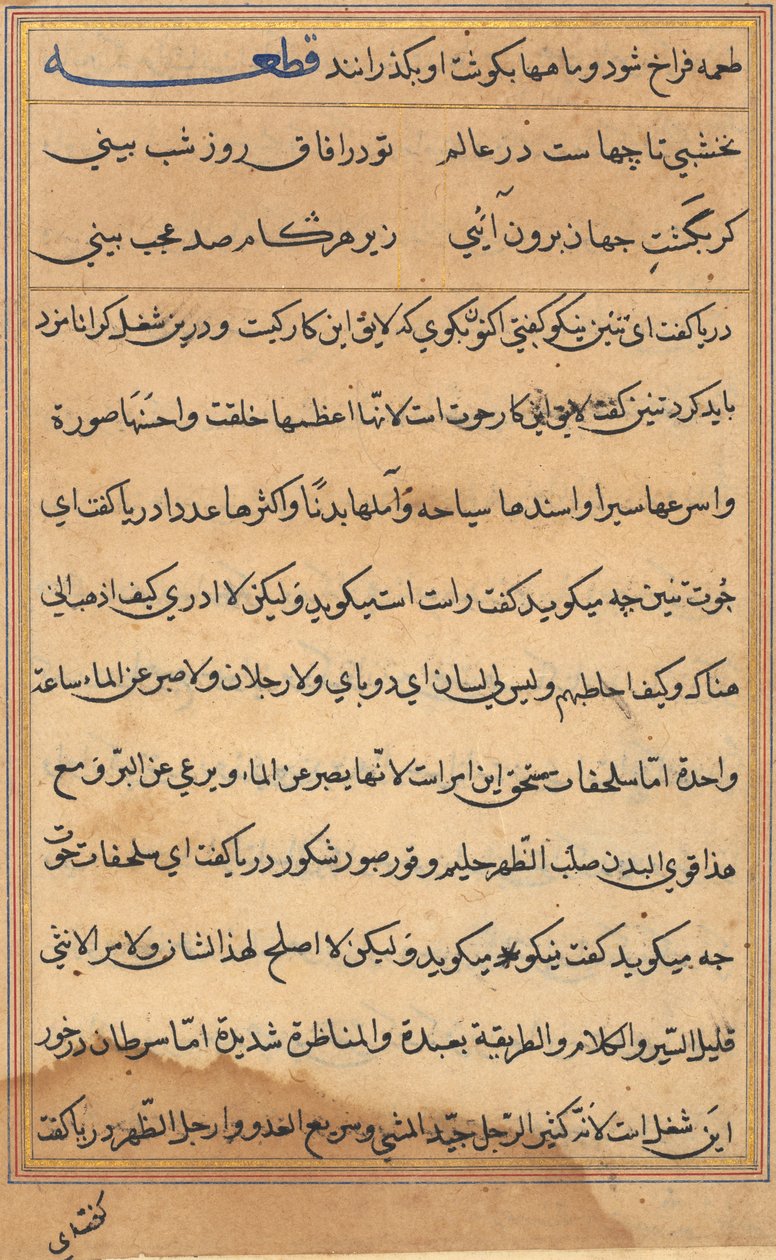 طعمه فراخ شود و ماهیها بکوشت او بکذرانند قطعه
نخشبی تا چهاست در عالم تو در افاق روز شب بینی
کر بگشتِ جهان برون آئیی زیر هر کام صد عجب بینی
دریا کفت ای تنین نیکو کفتی اکنون بکوی که لایق این کار کیست و درین شغل کرا نامزد
باید کرد تنین کفت لایق این کار حوت است لانّها اعظمها خلقت و احسَنهَا صورة
و اسرعها سیرا و اسندها سیاحه وَآملها بدنًا و اکثرها عددا دریا کفت ای
حُوت تنین چه میکوید کفت راست است میکوید وَلیکن لا ادری کیف اذهب الی
هناک و کیف اخاطبهم و لیس لی لسان ای دو پای و لا رجلان و لا صبر عن الماء ساعة
واحدة امّا سلحفات مستحق این امر است لانّها یصبر عن الماء و یرعی عن البرّ وَ مع
هذا قوی البدن صلب الظّهر حلیم و قور صبور شکور دریا کفت ای سلحفات حُوت
چه میکوید کفت نیکو میکوید وَلیکن لا اصلح لهذا الشان و لامر الانثی
قلیل السّیر و الکلام و الطریقة بعیدة و المناظرة شدیدة امّا سرطان در خور
این شغل است لاَنّه کثیر الرّجل جیّد المشی و سریع الغدو و ارجل الظّهر دریا کفت
کفت ای